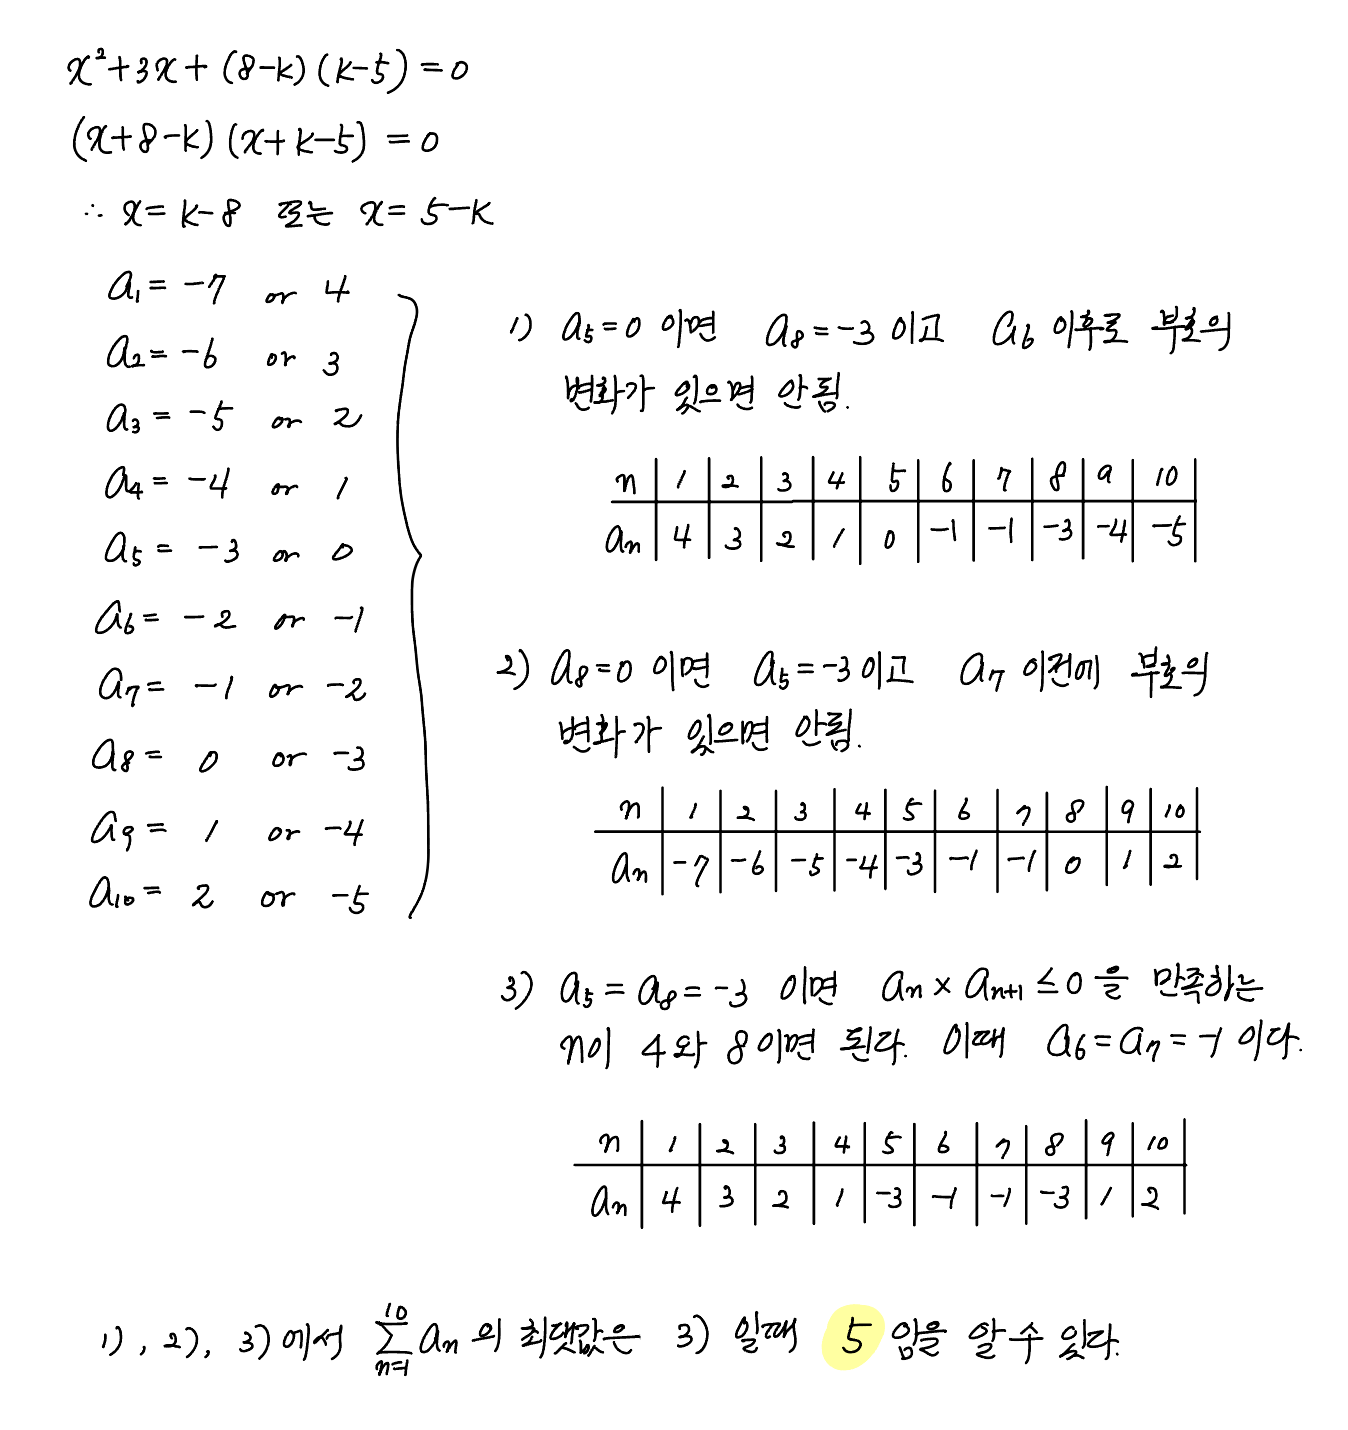 x²+3x+(8-k)(k-5)=0
(x+8-k)(x+k-5)=0
∴ x=k-8 또는 x=5-k
a₁=-7 or 4
a₂=-6 or 3
a₃=-5 or 2
a₄=-4 or 1
a₅=-3 or 0
a₆=-2 or -1
a₇=-1 or -2
a₈=0 or -3
a₉=1 or -4
a₁₀=2 or -5
1) a₅=0 이면 a₈=-3 이고 a₆ 이후로 부호의
변화가 있으면 안됨.
n 1 2 3 4 5 6 7 8 9 10
aₙ 4 3 2 1 0 -1 -1 -3 -4 -5
2) a₈=0 이면 a₅=-3 이고 a₇ 이전에 부호의
변화가 있으면 안됨.
n 1 2 3 4 5 6 7 8 9 10
aₙ -7 -6 -5 -4 -3 -1 -1 0 1 2
3) a₅=a₈=-3 이면 aₙ×aₙ₊₁≤0 을 만족하는
n이 4와 8이면 된다. 이때 a₆=a₇=-1 이다.
n 1 2 3 4 5 6 7 8 9 10
aₙ 4 3 2 1 -3 -1 -1 -3 1 2
1), 2), 3) 에서 ∑ₙ₌₁¹⁰ aₙ 의 최댓값은 3) 일때 5 임을 알 수 있다.